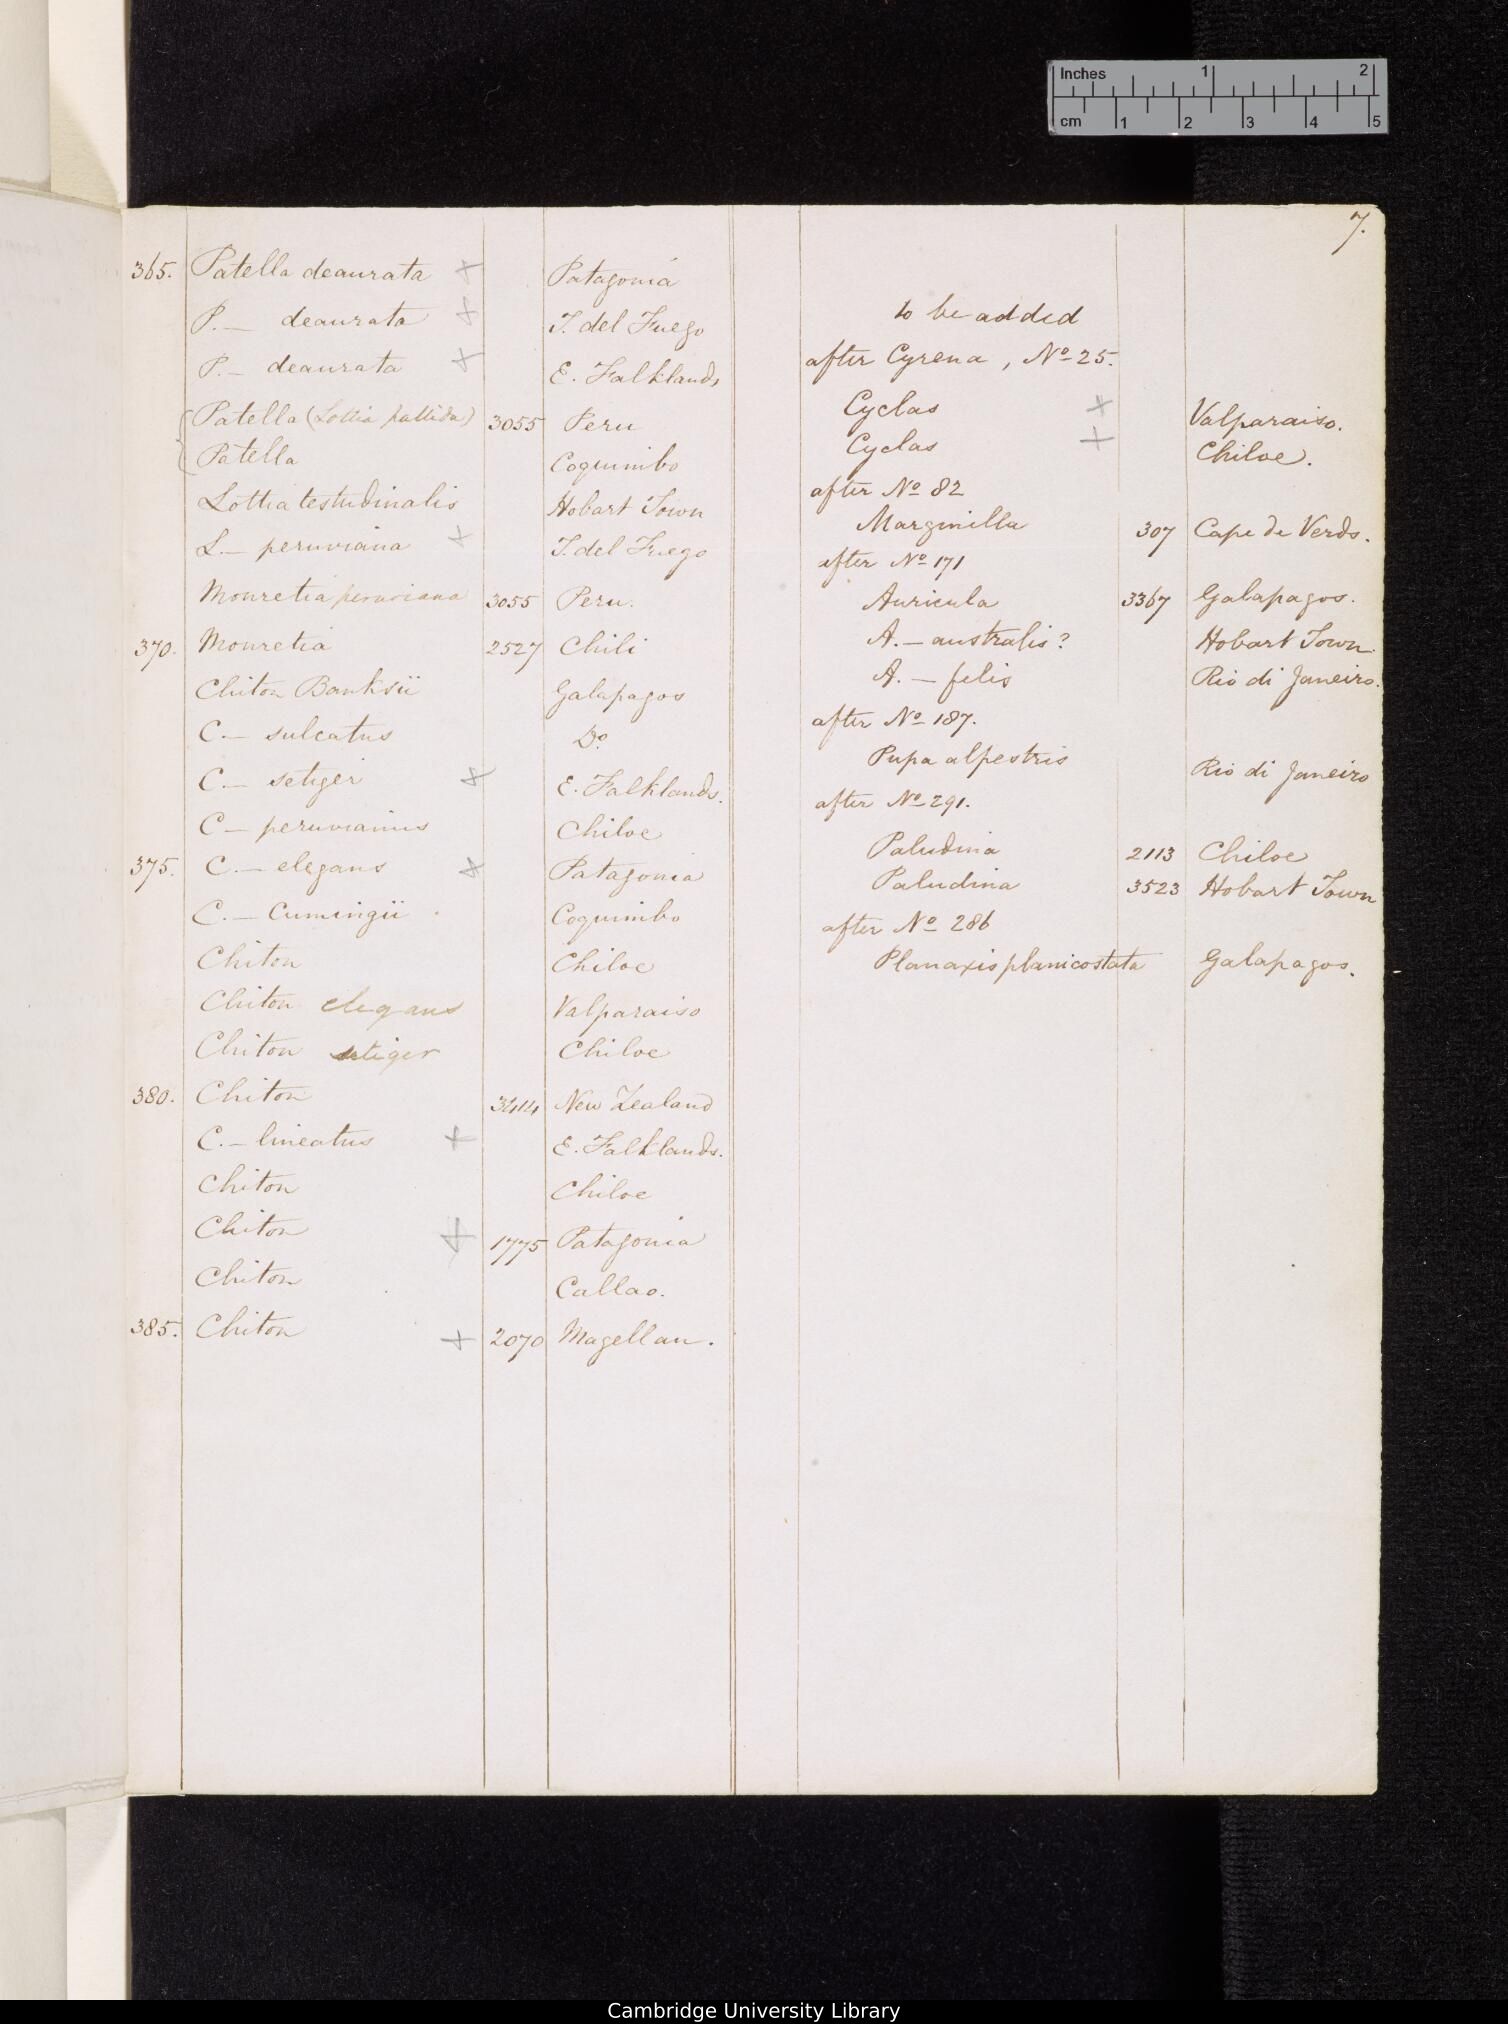 Inches 1 2
cm 1 2 3 4 5
7.
365. Patella deaurata + Patagonia
P. — deaurata + T. del Fuego
P. — deaurata + E. Falklands
Patella (Lottia pallida) 3055 Peru
Patella Coquimbo
Lottia testudinalis Hobart Town
L. — peruviana + T. del Fuego
Mouretia peruviana 3055 Peru.
370. Mouretia 2527 Chili
Chiton Banksii Galapagos
C. — sulcatus Do.
C. — setiger + E. Falklands.
C — peruvianus Chiloe
375. C. — elegans + Patagonia
C. — Cumingii Coquimbo
Chiton Chiloe
Chiton elegans Valparaiso
Chiton setiger Chiloe
380. Chiton 3414 New Zealand
C. — lineatus + E. Falklands.
Chiton Chiloe
Chiton + 1775 Patagonia
Chiton Callao.
385. Chiton + 2070 Magellan.
to be added
after Cyrena, No 25.
Cyclas + Valparaiso.
Cyclas + Chiloe.
after No 82
Marginilla 307 Cape de Verds.
after No 171
Auricula 3367 Galapagos.
A. — australis? Hobart Town.
A. — felis Rio di Janeiro.
after No 187.
Pupa alpestris Rio di Janeiro
after No 291.
Paludina 2113 Chiloe
Paludina 3523 Hobart Town
after No 286
Planaxis planicostata Galapagos.
Cambridge University Library